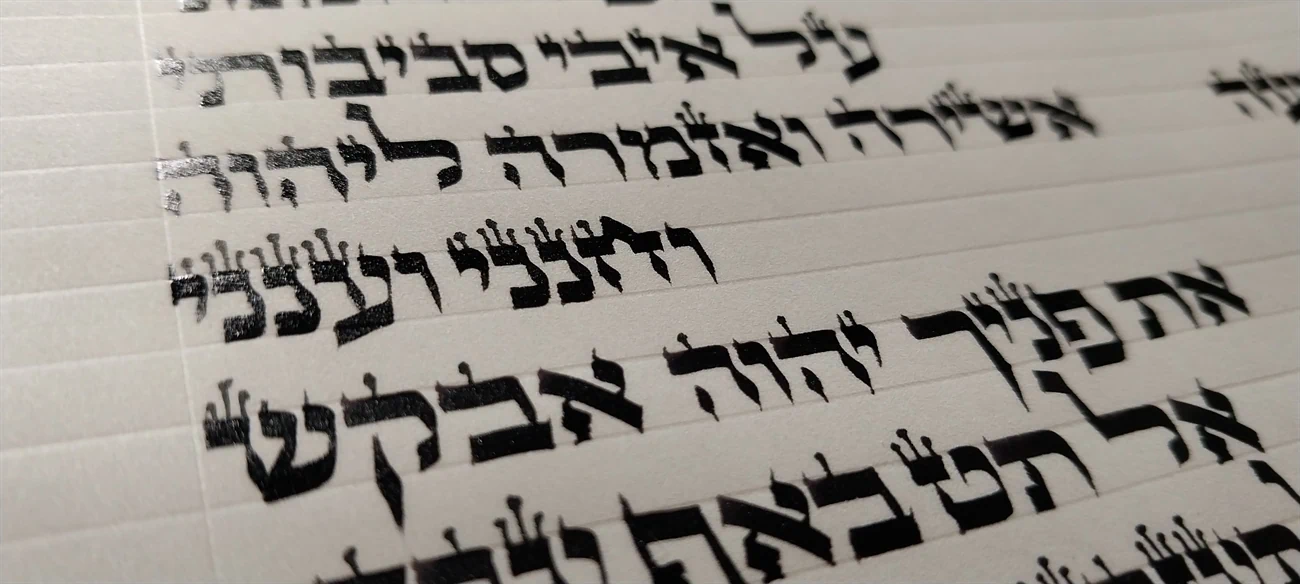 על איבי סביבותי
אשירה ואזמרה ליהוה
וחנני וענני
את פניך יהוה אבקש
אל תט באף